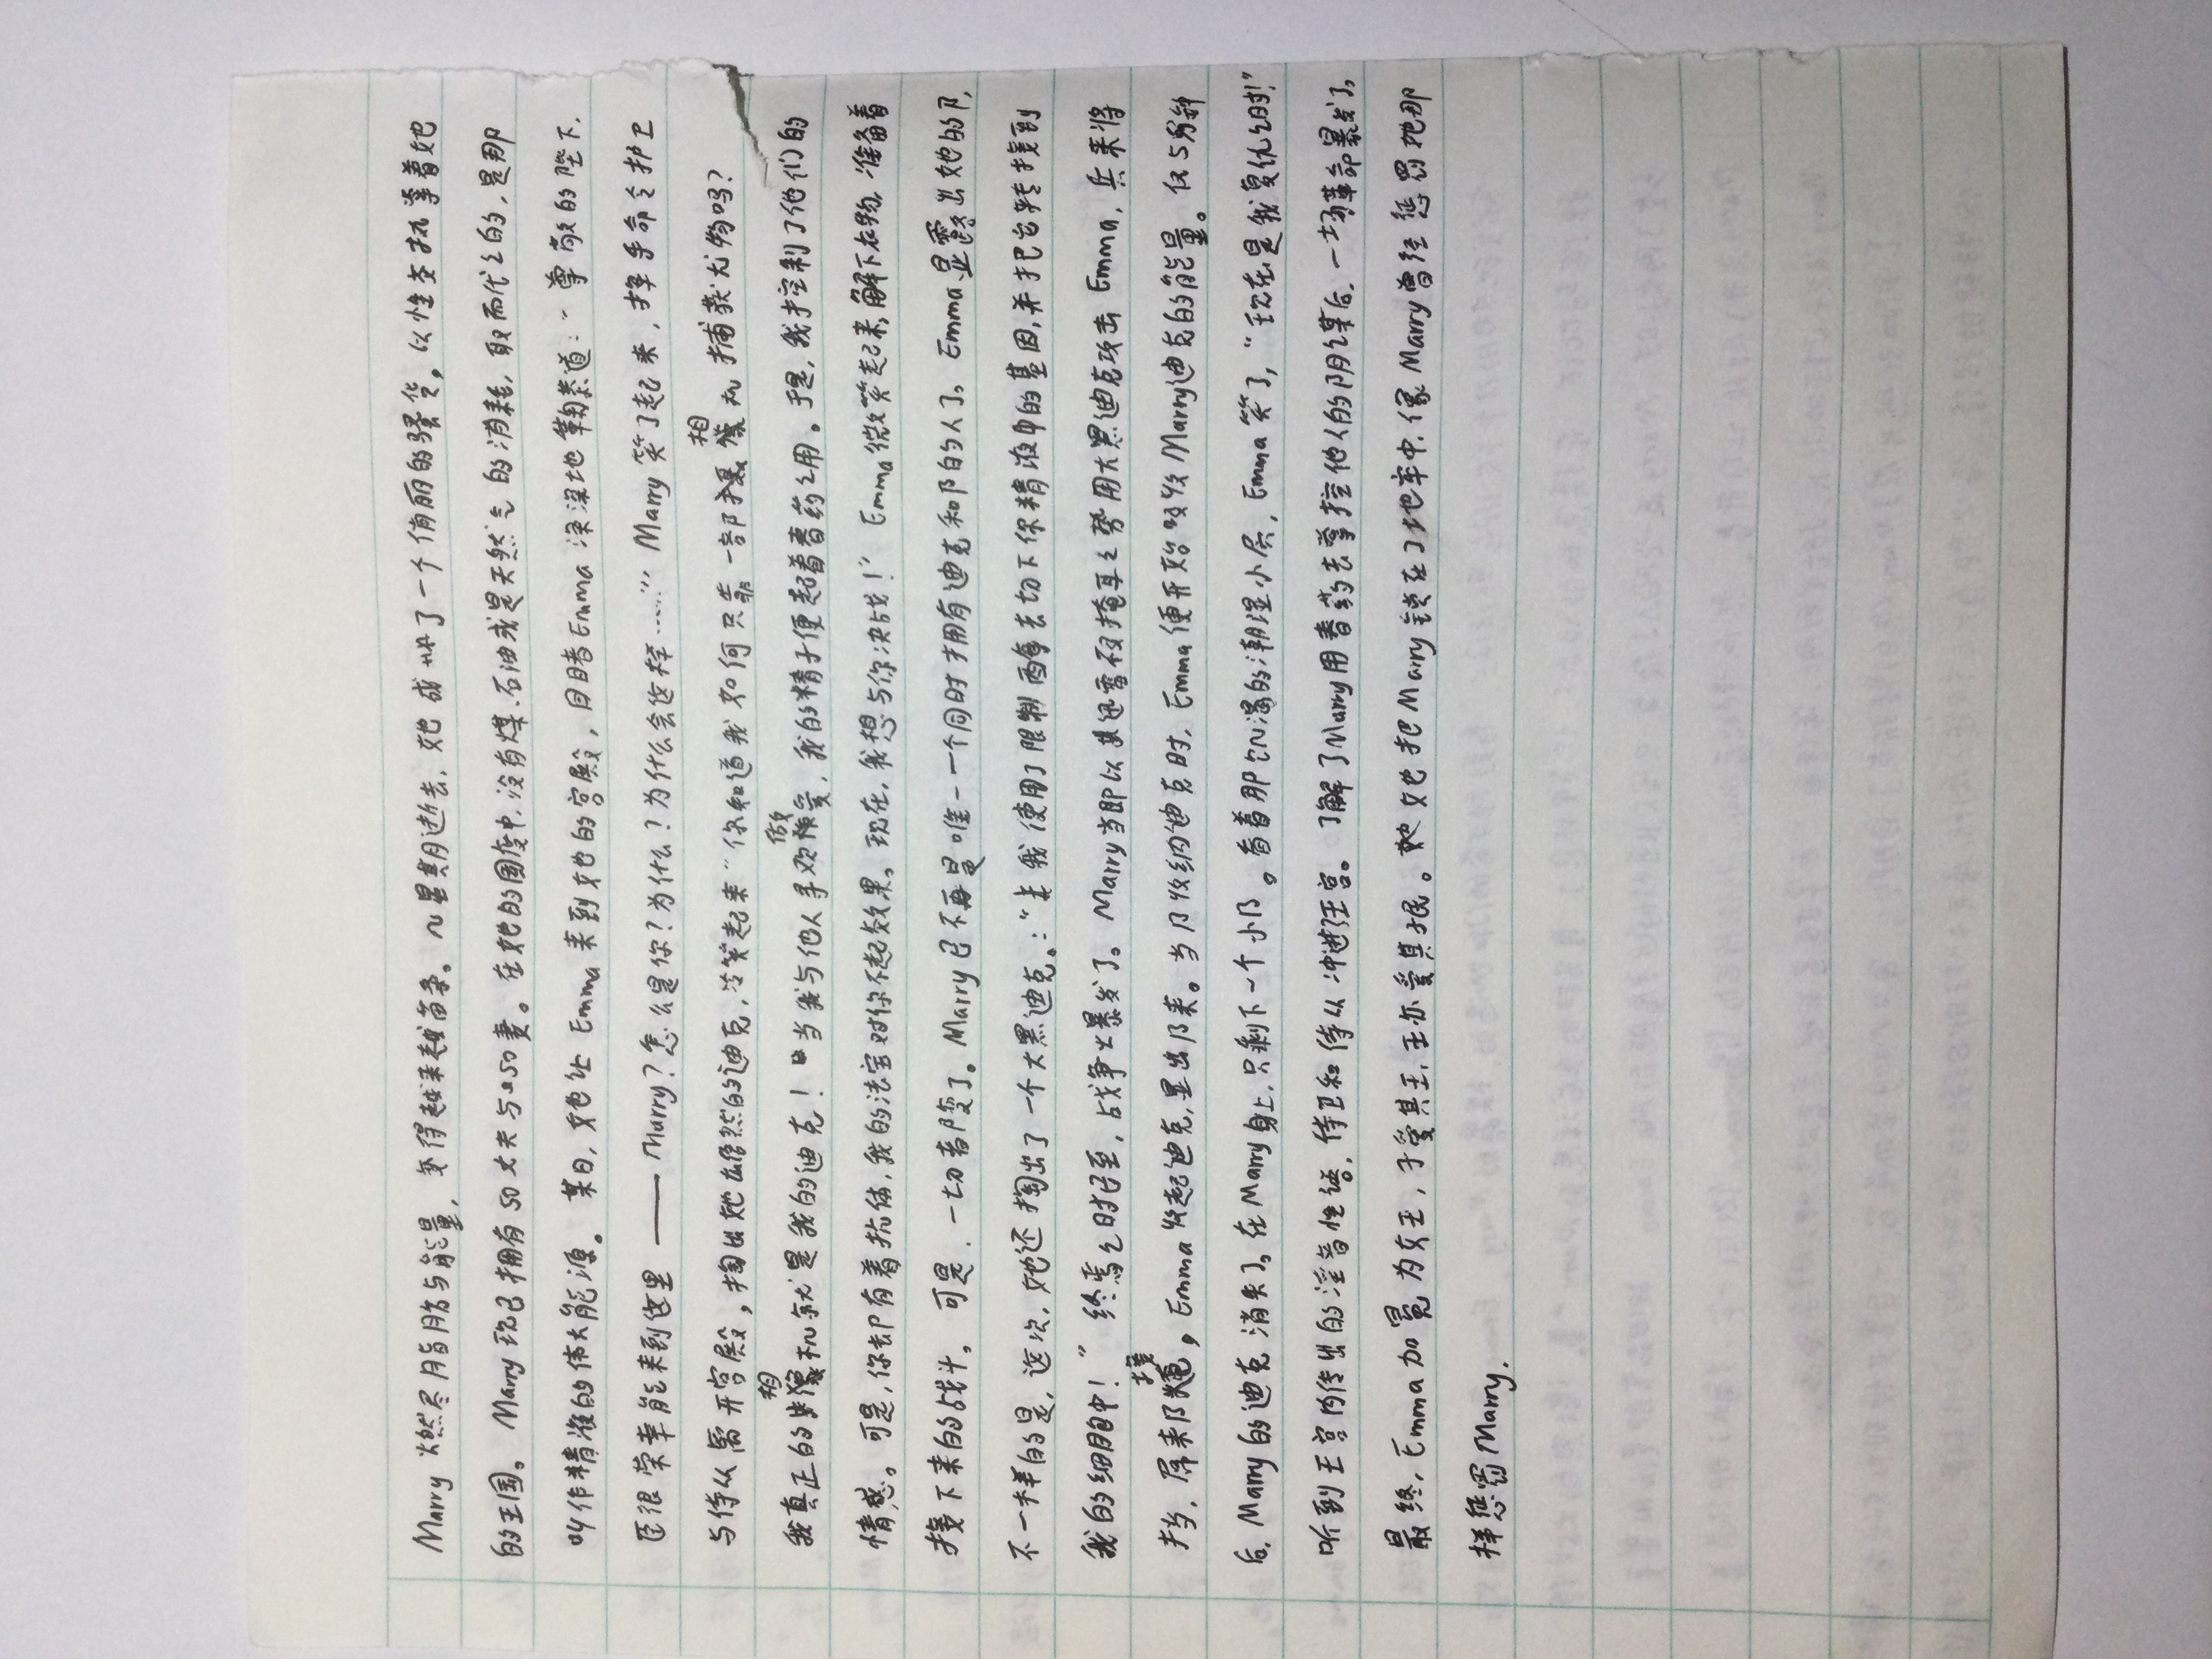 Marry 燃尽脂肪与能量，变得越来越苗条。N星期逝去，她成为了一个俏丽的骚货。以性交执掌着她
的王国。Marry 现已拥有50丈夫与50妻。在她的国度中，没有煤、石油或是天然气的消耗，取而代之的，是那
叫作精液的伟大能源。某日，她让 Emma 来到她的宫殿，目睹Emma 深深地鞠恭道：“尊敬的陛下，
臣很荣幸能来到这里——Marry？怎么是你？为什么？为什么会这样……” Marry 笑了起来，挥手命令护卫
与侍从离开宫殿，掏出她的迪克，冷笑起来“你知道我如何只靠一部相机捕获尤物吗？
我真正的相机就是我的迪克！当我与他人寻欢做爱，我的精子便起着春药之用。于是，我控制了他们的
情感。可是，你却有着抗体，我的法宝对你不起效果。现在，我想与你决战！” Emma 微笑起来，解下衣物，准备着
接下来的战斗。可是，一切都变了。Marry 已不再是唯一一个同时拥有迪克和阝的人了。Emma 显露出她的阝，
不一样的是，这次，她还掏出了一个大黑迪克。：“我使用了限制酶去切下你精液中的基因，并把它转接到
我的细胞中！” 终焉之时已至，战争爆发了。Marry当即以其迅雷不及掩耳之势用大黑迪克攻击 Emma，兵来将
挡，屌来阝接。Emma 收起迪克，显出阝来。当阝收纳迪克时，Emma 便开始吸收Marry迪克的能量。仅5分钟
后，Marry 的迪克消失了。在Marry 身上，只剩下一个小阝。看着那饱满的潮湿小屄，Emma 笑了，“现在是我复仇之时！”
听到王宫内传出的淫音性语，侍卫和侍从冲进王宫。了解了Marry用春药去掌控他人的阴谋后，一场革命暴发了。
最终，Emma 加冕为女王，子爱其王，王亦爱其民。她把Marry锁在了地牢中，像 Marry 曾经惩罚她那
样惩罚Marry.